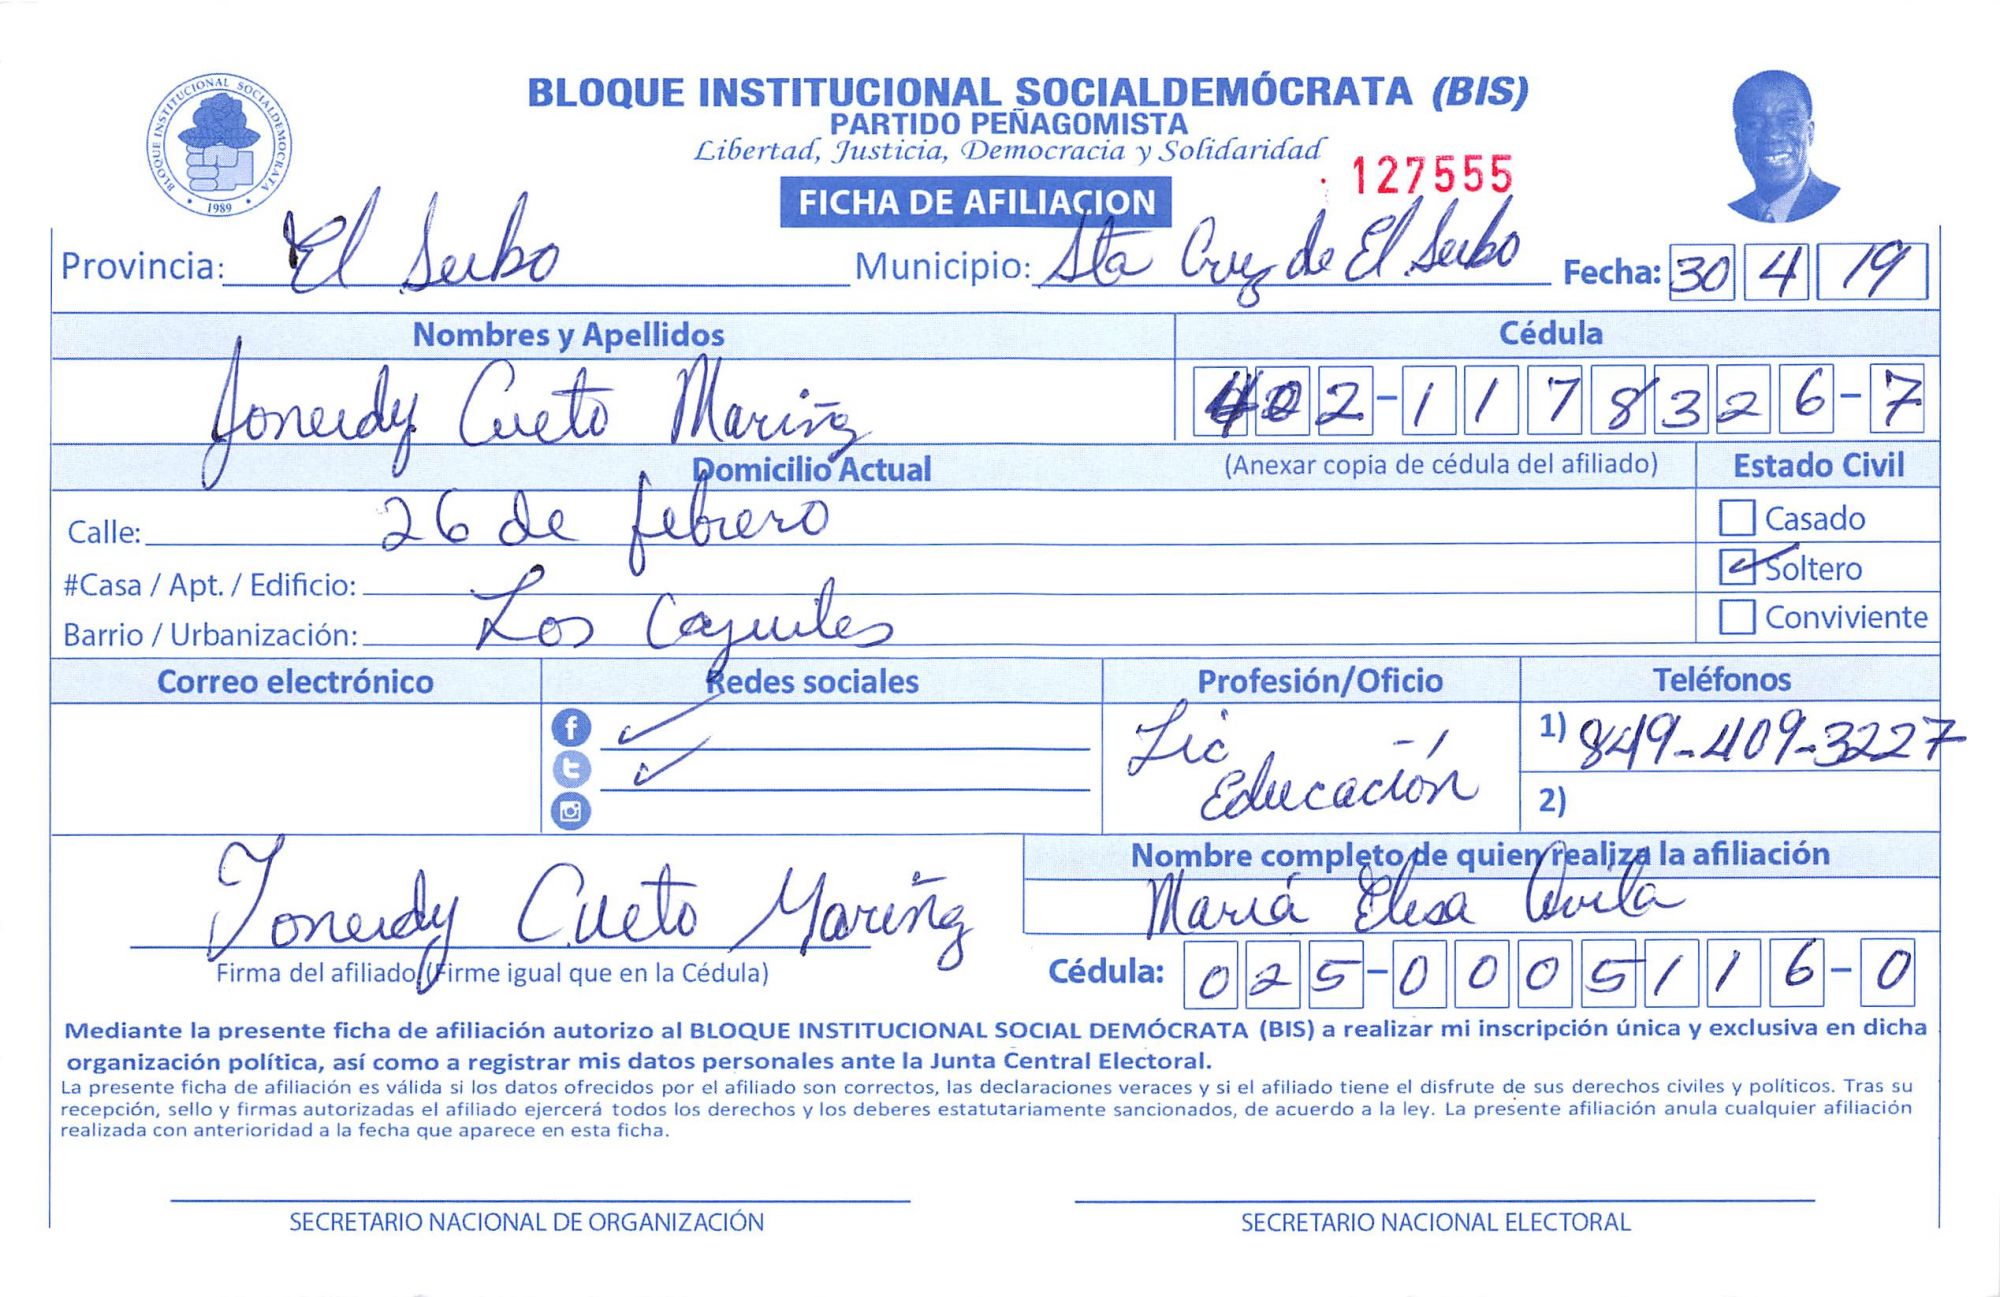 BLOQUE INSTITUCIONAL SOCIALDEMÓCRATA (BIS)
PARTIDO PEÑAGOMISTA
Libertad, Justicia, Democracia y Solidaridad
127555
BLOQUE INSTITUCIONAL SOCIALDEMOCRATA
1989
FICHA DE AFILIACION
Provincia: El Seibo Municipio: Sta Cruz de El Seibo Fecha: 30 4 19
Nombres y Apellidos Cédula
Yoneidy Cueto Mariñz 402-1178326-7
Domicilio Actual (Anexar copia de cédula del afiliado) Estado Civil
Calle: 26 de febrero Casado
#Casa / Apt. / Edificio: Soltero
Barrio / Urbanización: Los Cajuiles Conviviente
Correo electrónico Redes sociales Profesión/Oficio Teléfonos
Lic Educación 1) 849-409-3227
2)
Nombre completo de quien realiza la afiliación
Yoneidy Cueto Mariñz María Elisa Avila
Firma del afiliado (Firme igual que en la Cédula) Cédula: 025-0005116-0
Mediante la presente ficha de afiliación autorizo al BLOQUE INSTITUCIONAL SOCIAL DEMÓCRATA (BIS) a realizar mi inscripción única y exclusiva en dicha
organización política, así como a registrar mis datos personales ante la Junta Central Electoral.
La presente ficha de afiliación es válida si los datos ofrecidos por el afiliado son correctos, las declaraciones veraces y si el afiliado tiene el disfrute de sus derechos civiles y políticos. Tras su
recepción, sello y firmas autorizadas el afiliado ejercerá todos los derechos y los deberes estatutariamente sancionados, de acuerdo a la ley. La presente afiliación anula cualquier afiliación
realizada con anterioridad a la fecha que aparece en esta ficha.
SECRETARIO NACIONAL DE ORGANIZACIÓN SECRETARIO NACIONAL ELECTORAL